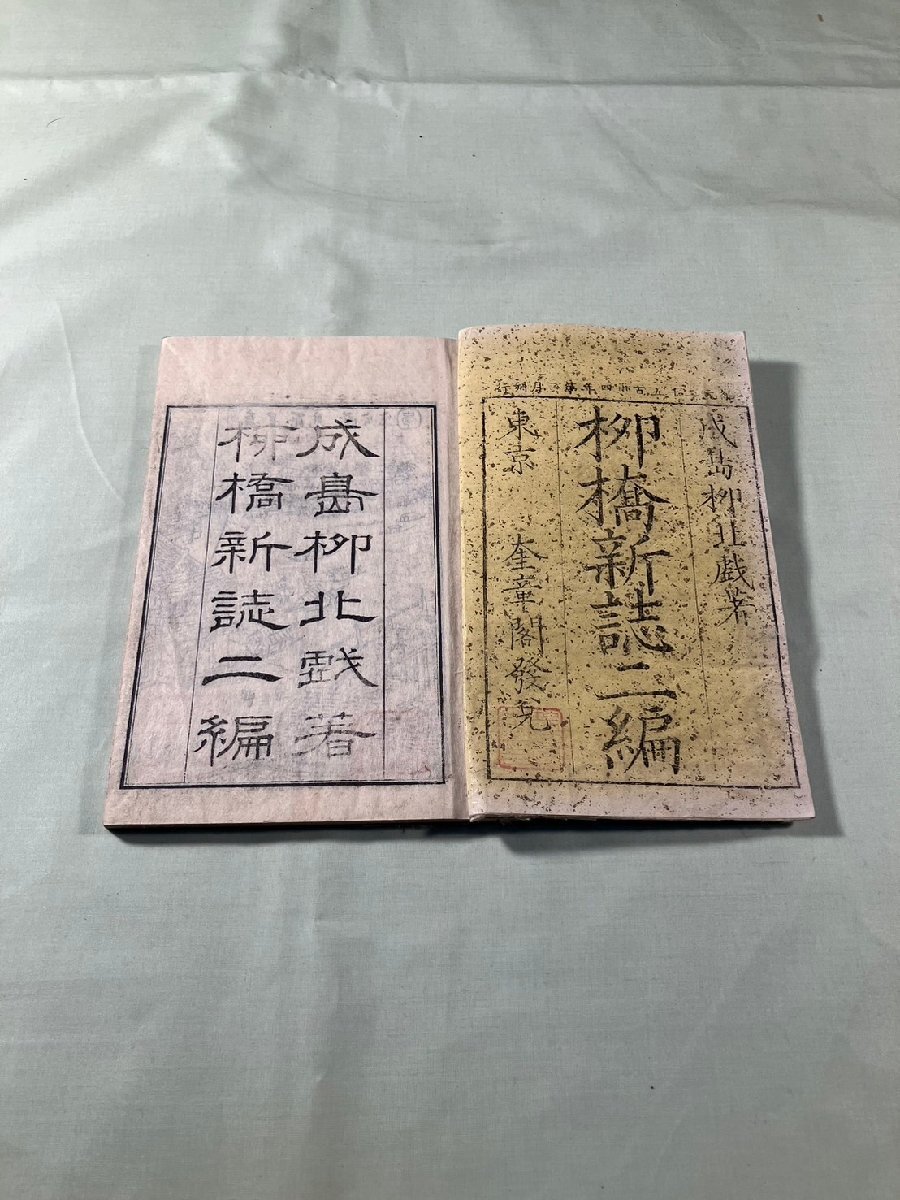 成島柳北戯著
柳橋新誌二編
東京 奎章閣發兌
成島柳北戲著
柳橋新誌二編